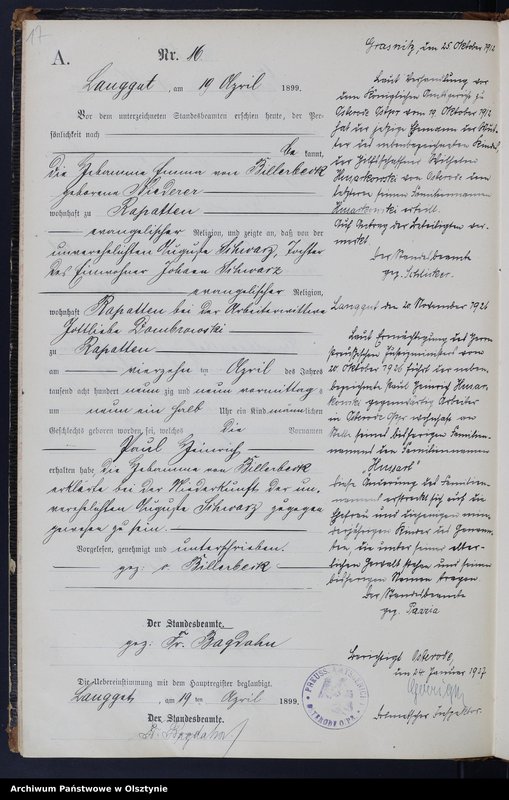 17
A.
Nr. 16.
Langgut, am 19 April 1899.
Vor dem unterzeichneten Standesbeamten erschien heute, der Per-
sönlichkeit nach
be kannt,
die Hebamme Emma von Billerbeck
geborene Niederer
wohnhaft zu Rapatten
evangelischer Religion, und zeigte an, daß von der
unverehelichten Auguste Schwarz, Tochter
des Einwohner Johann Schwarz
evangelischer Religion,
wohnhaft Rapatten bei der Arbeiterwittwe
Gottliebe Dombrowski
zu Rapatten
am vierzehn ten April des Jahres
tausend acht hundert neun zig und neun vormittags
um neun ein halb Uhr ein Kind männlichen
Geschlechts geboren worden sei, welches die Vornamen
Paul Heinrich
erhalten habe. Die Hebamme von Billerbeck
erklärte bei der Niederkunft der un-
verehelichten Auguste Schwarz zugegen
gewesen zu sein.
Vorgelesen, genehmigt und unterschrieben.
gez: v Billerbeck
Der Standesbeamte.
gez: Fr. Bagdahn
Die Uebereinstimmung mit dem Hauptregister beglaubigt.
Langgut, am 19 ten April 1899.
Der Standesbeamte.
Fr. Bagdahn
Grasnitz, den 25. Oktober 1912
Laut Verhandlung vor
dem Königlichen Amtsgericht zu
Osterode Ostpr vom 19 Oktober 1912
hat der jetzige Ehemann der Mut-
ter des nebenbezeichneten Kindes,
der Wilhelm
Husarkowski von Osterode dem
letzteren seinen Familiennamen
Husarkowski erteilt.
Auf Antrag der Beteiligten ver-
merkt.
Der Standesbeamte
gez.
Langgut den 20 November 1926
Laut Ermächtigung des Herrn
Preußischen Justizministers vom
20. Oktober 1926 führt der neben-
bezeichnete Paul Heinrich Husar-
kowski gegenwärtig Arbeiter
in Osterode Ostpr wohnhaft an
Stelle seines bisherigen Familien-
namens den Familiennamen
"Husark"
Diese Änderung des Familien-
namens erstreckt sich auf die
Ehefrau und diejenigen min-
derjährigen Kinder des Genann-
ten, die unter seiner elter-
lichen Gewalt stehen und seinen
bisherigen Namen tragen.
Der Standesbeamte
gez.
Berichtigt Osterode,
den 24 Januar 1927
Inspektor.
PREUSS. AMTSGERICHT
OSTERODE O.PR.
Archiwum Państwowe w Olsztynie